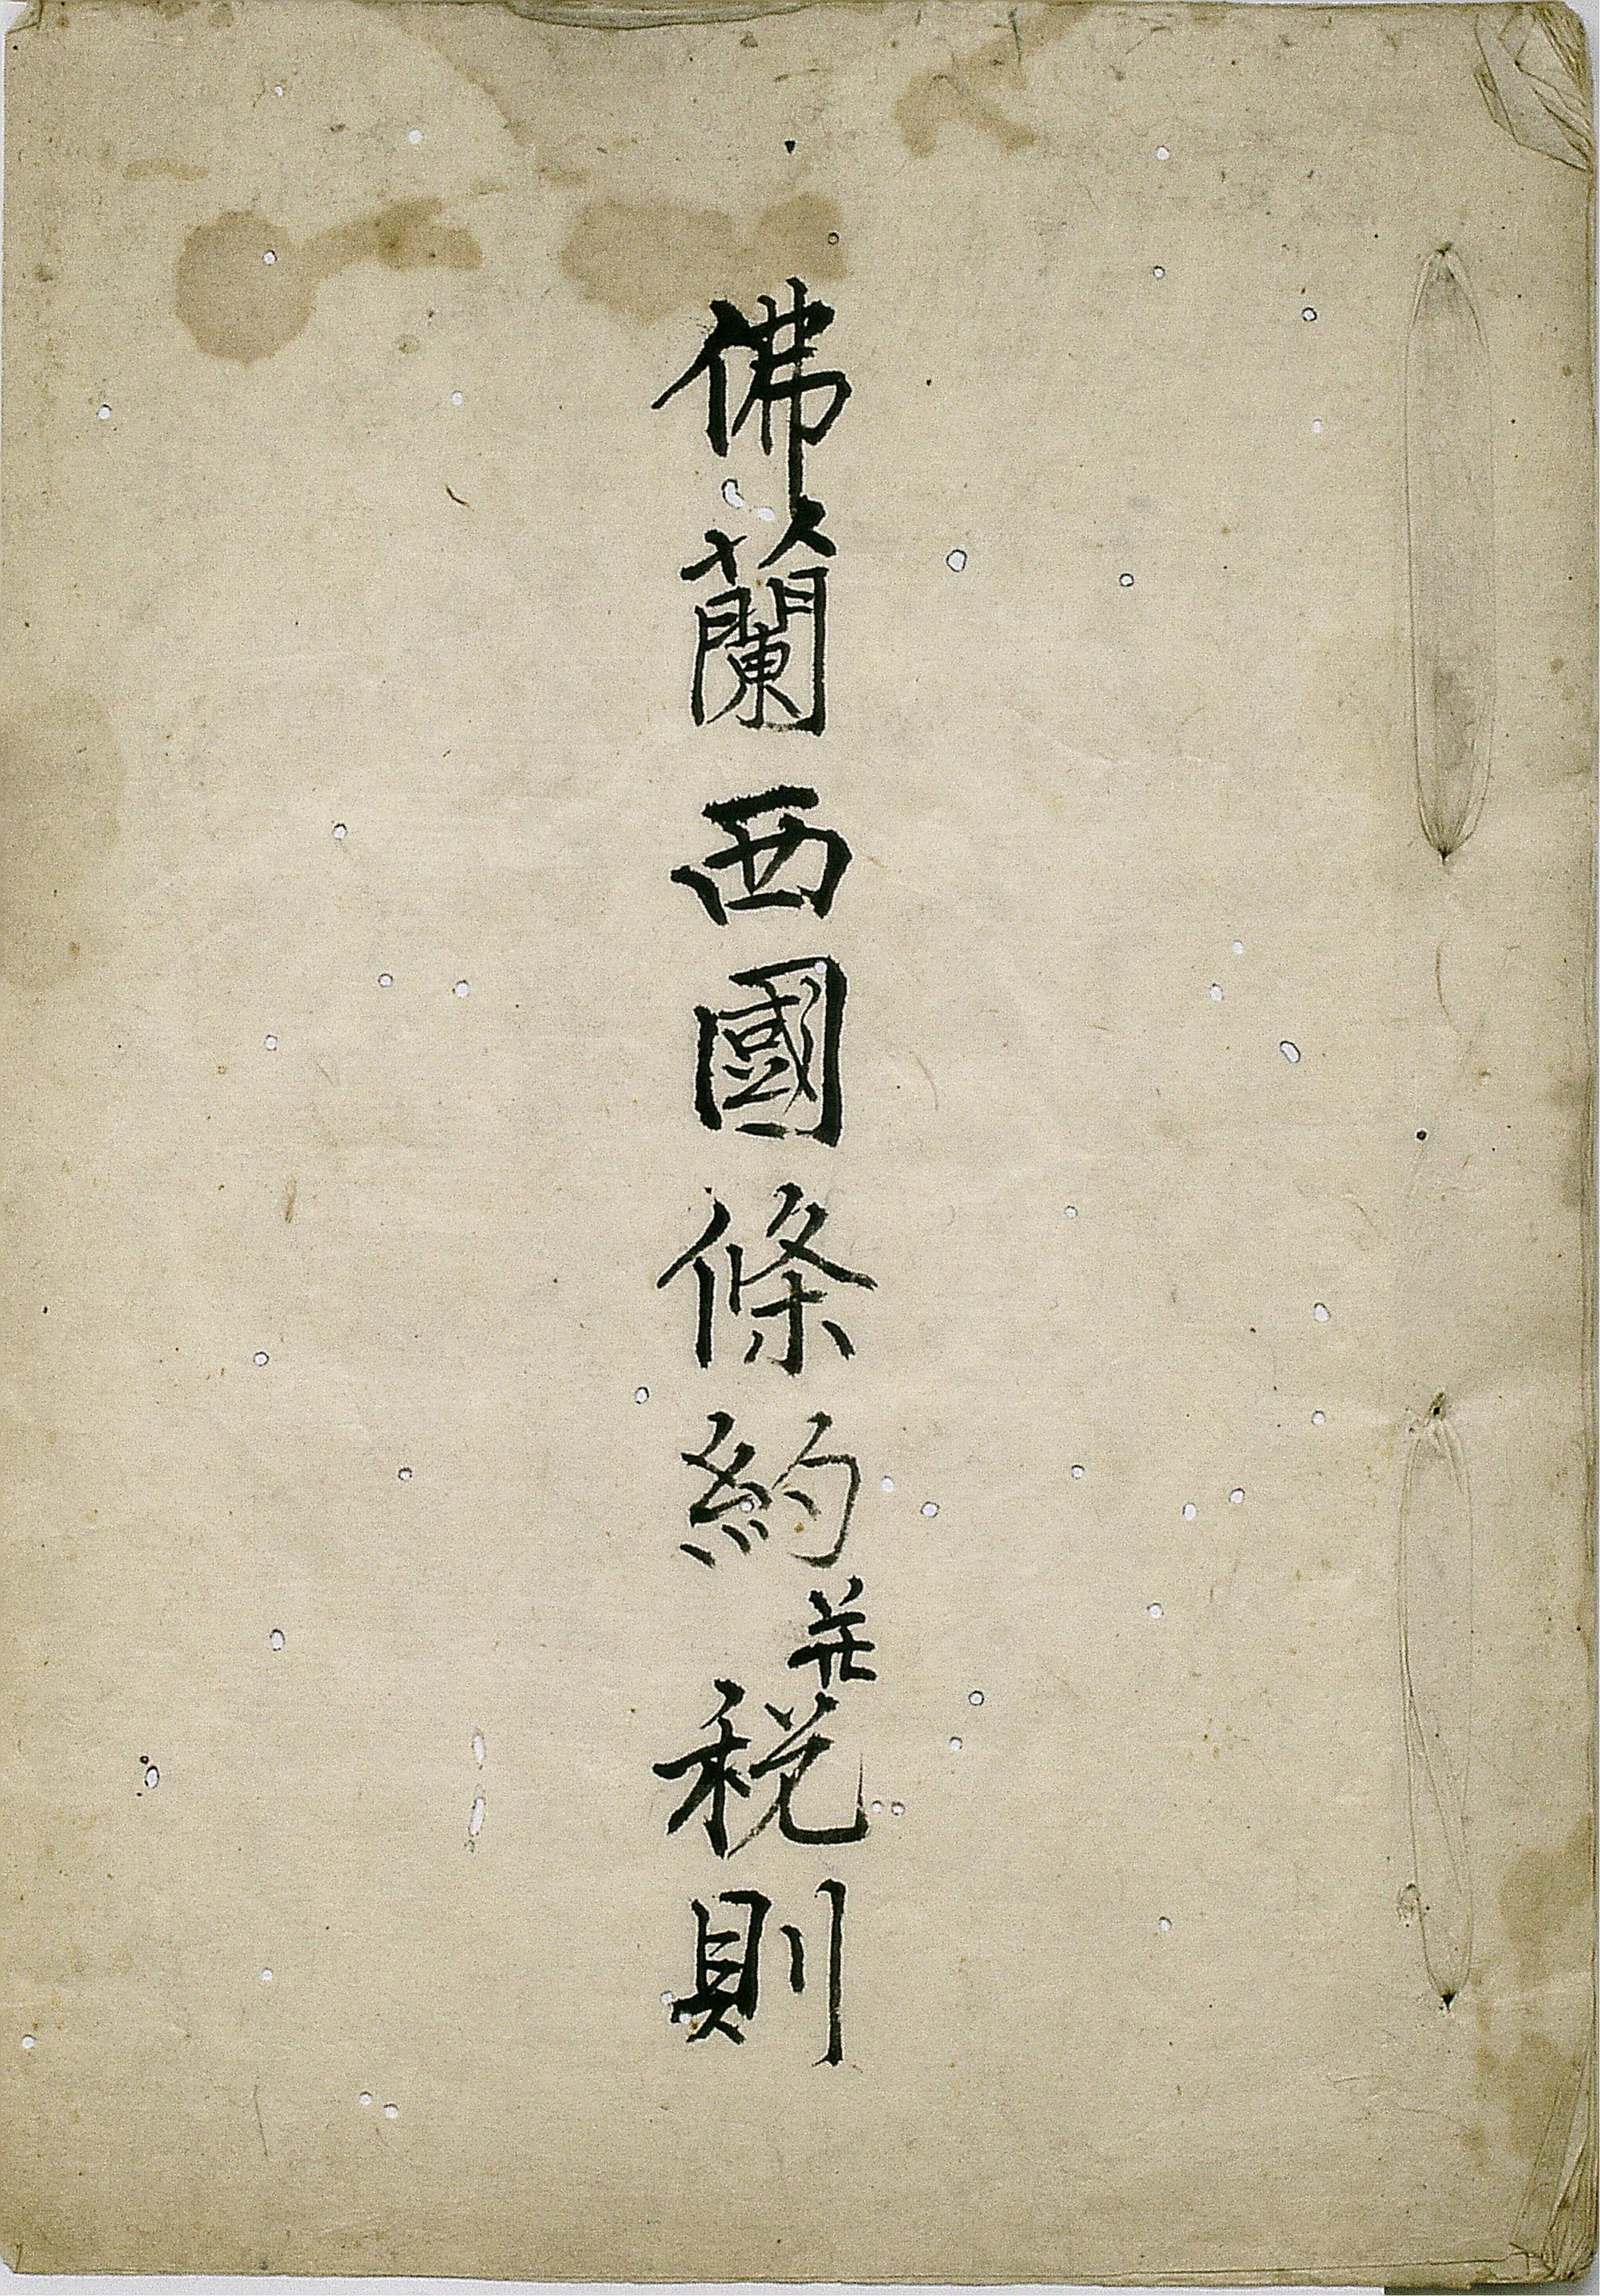 佛蘭西國條約並税則